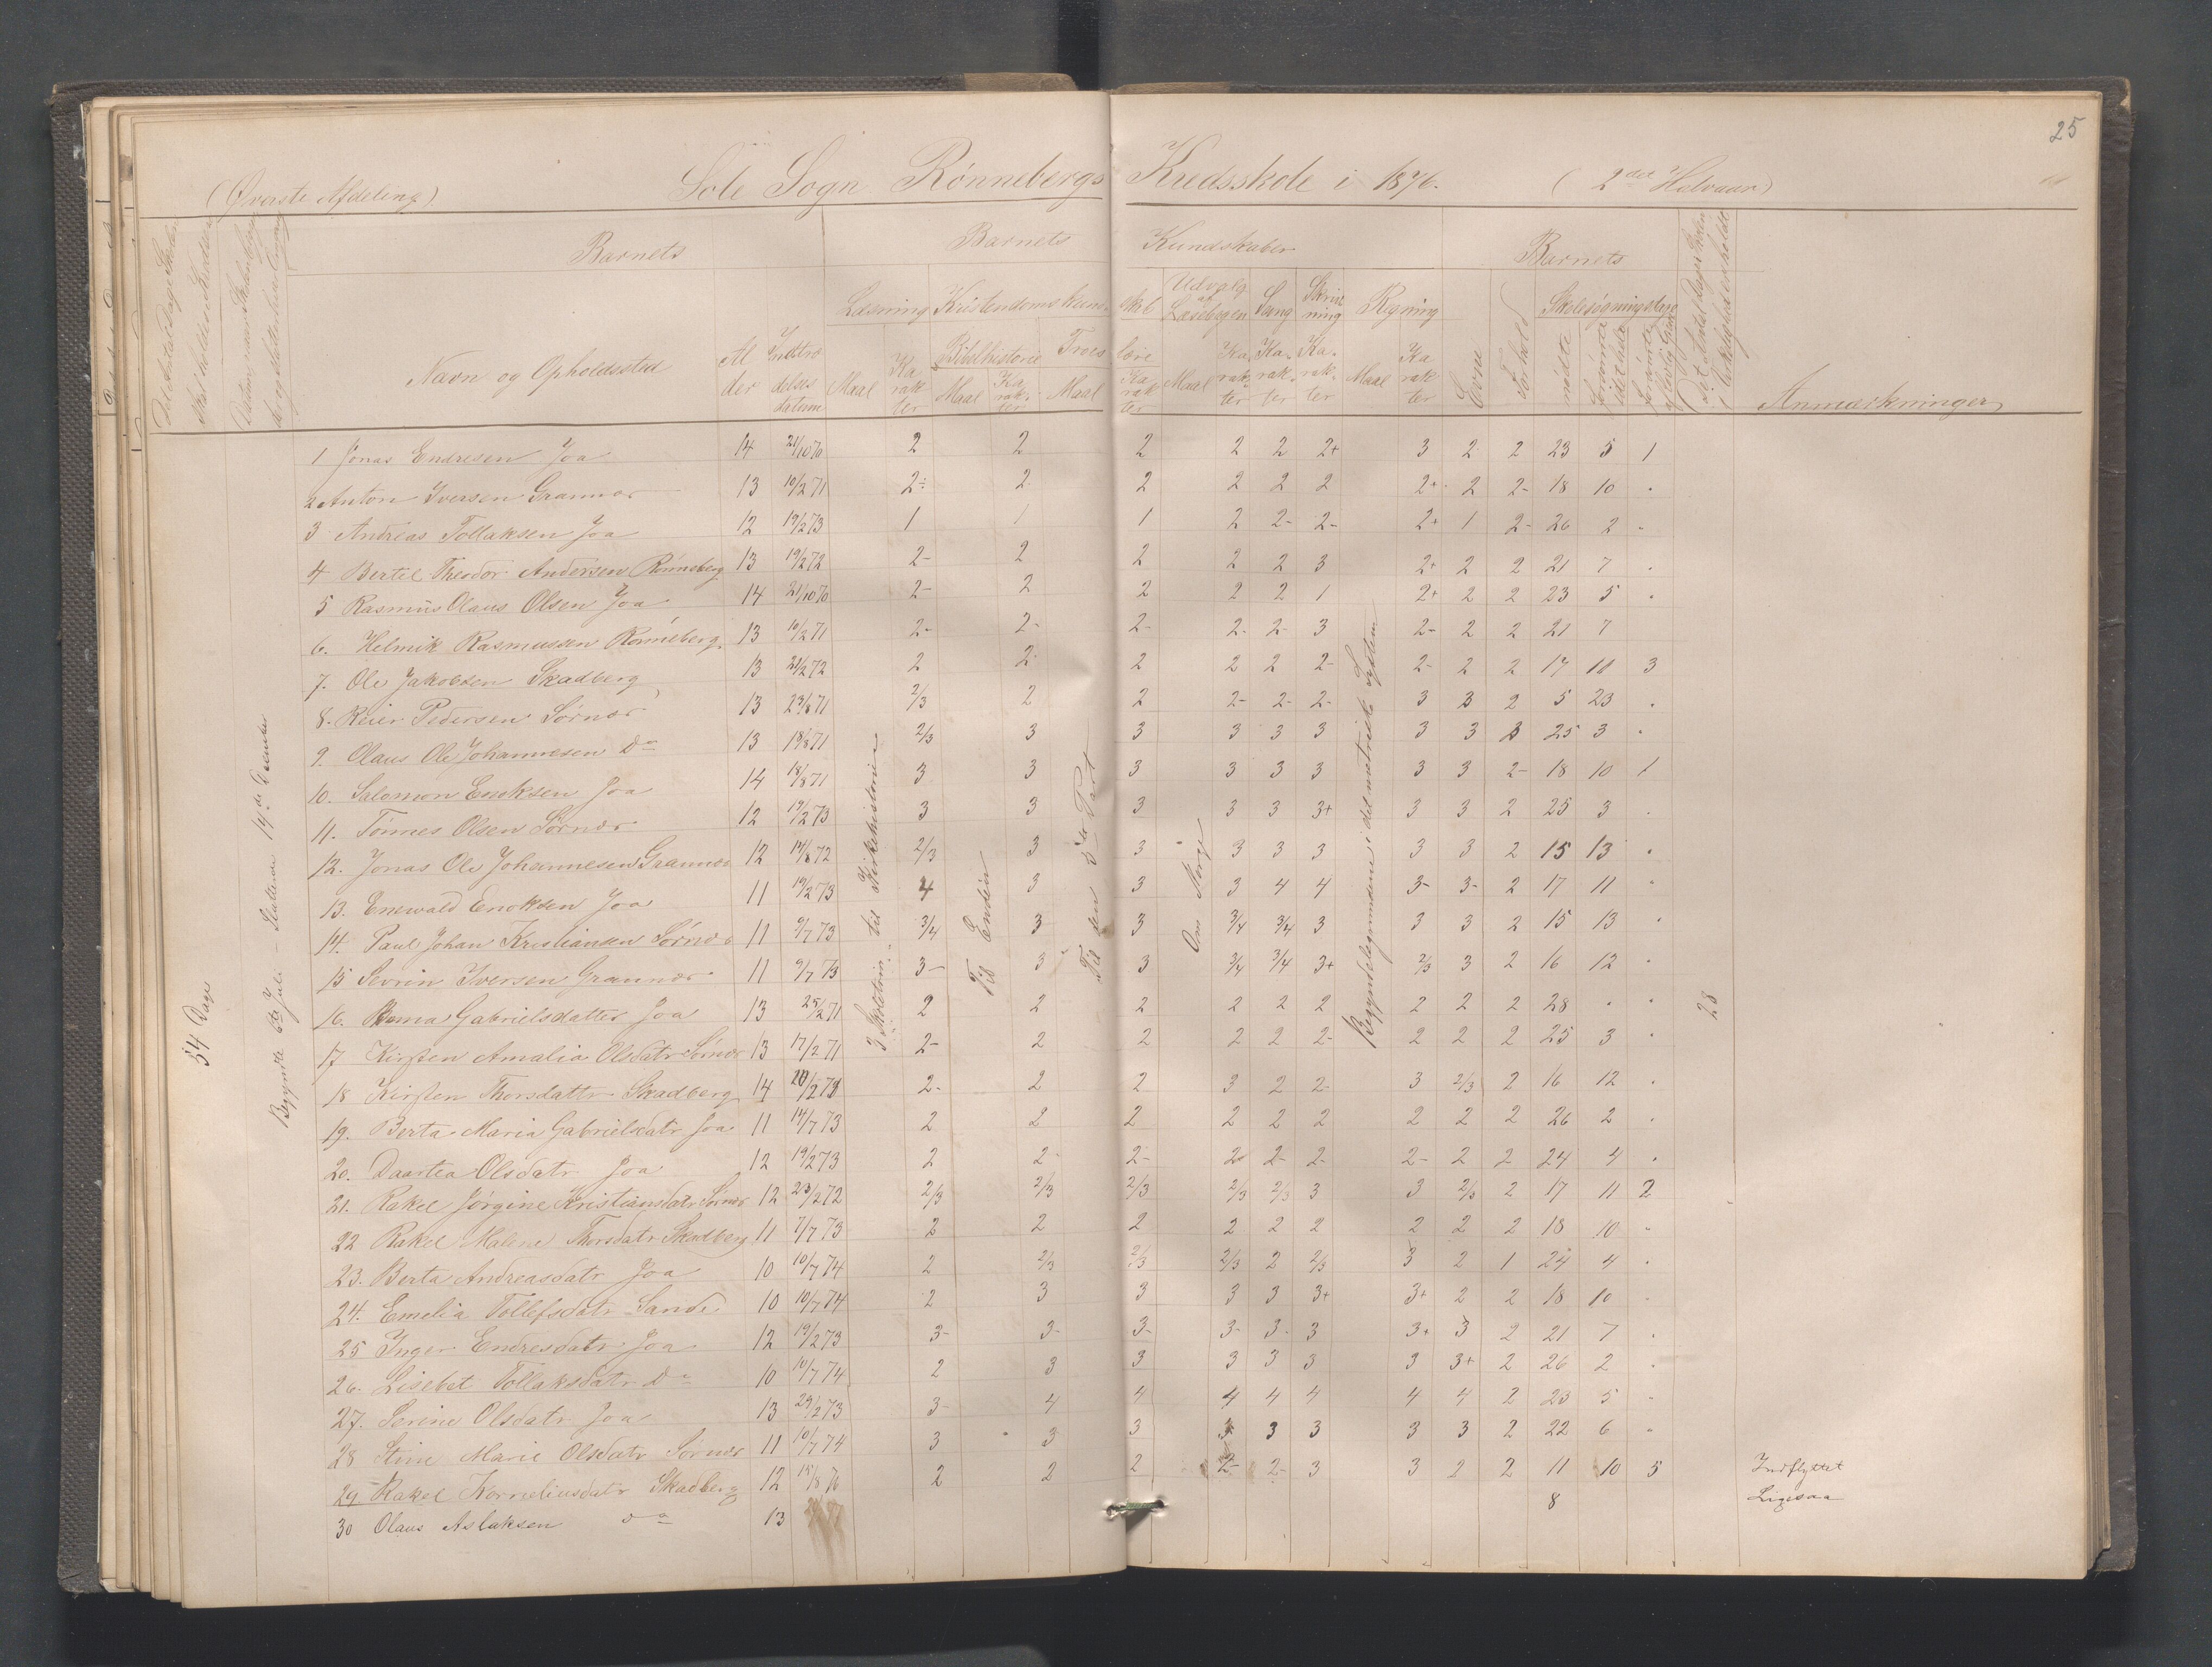 25
(Øverste Afdeling) Sole Sogn Rønnebergs Kredsskole i 1876. (2det Halvaar)
Det Antal Dage Skolen skal holdes i Kredsen
Datum, naar Skolen begynder og slutter hver Omgang
Barnets Barnets Kundskaber Barnets
Det Antal Dage Skolen i Virkelighed er holdt
Navn og Opholdssted
Alder Indtrædelsesdatum
Læsning Kristendomskundskab Udvalg af Læsebogen Sang Skrivning Regning
Maal Karakter Bibelhistorie Maal Karakter Troeslære Maal Karakter Maal Karakter Karakter Karakter Maal Karakter
Evne Forhold Skolesøgningsdage mødte forsømte i det hele forsømte af lovlig Grund
Anmærkninger
54 Dage
Begyndte 6te Juli - Sluttede 14de December
3 Skoletrin til Kirkehistorien
Til Enden
Til den 3die Part
Om Norge
Begyndelsegrundene i det metriske System
28
1 Jonas Endresen Joa 14 21/10 70 2 2 2 2 2 2+ 3 2 2 23 5 1
2 Anton Iversen Grannæs 13 10/2 71 2÷ 2 2 2 2 2 2+ 2 2- 18 10 "
3 Andreas Tollaksen Joa 12 19/2 73 1 1 1 2 2- 2- 2+ 1 2- 26 2 "
4 Bertel Theodor Andersen Rønneberg 13 19/2 72 2- 2 2 2 2 3 2+ 2 2 21 7 "
5 Rasmus Olaus Olsen Joa 14 21/10 70 2- 2 2 2 2 1 2+ 2 2 23 5 "
6. Helmik Rasmussen Rønneberg 13 10/2 71 2- 2- 2- 2- 2- 3 2- 2 2 21 7
7. Ole Jakobsen Skadberg 13 21/2 72 2 2 2 2 2 2- 2- 2 2 17 11 3
8. Reier Pedersen Sørnæs 13 23/8 71 2/3 2 2 2- 2- 2- 3 3 2 5 23 "
9. Olaus Ole Johannesen Do 13 18/8 71 2/3 3 3 3 3 3 3 3 3 25 3 "
10. Salomon Enoksen Joa 14 18/8 71 3 3 3 3 3 3 3 3 2- 18 10 1
11. Tønnes Olsen Sørnæs 12 19/2 73 3 3 3 3 3 3+ 3 3 2 25 3 "
12. Jonas Ole Johannesen Grannæs 12 14/8 72 2/3 3 3 3 3 3 3 3 2 15 13 "
13. Enevald Enoksen Joa 11 19/2 73 4 3 3 3 4 4 3- 3- 2 17 11 "
14. Paul Johan Kristiansen Sørnæs 11 9/7 73 3/4 3 3 3/4 3/4 3 3 3 2 15 13 "
15 Sevrin Iversen Grannæs 11 9/7 73 3- 3 3 3/4 3/4 3+ 2/3 3 2 16 12 "
16. Gabrielsdatter Joa 13 25/2 71 2 2 2 2 2 2 2 2 2 28 " "
17 Kirsten Amalia Olsdatr Sørnæs 13 17/2 71 2- 2 2 2 2 2- 2 2 2 25 3 "
18 Kirsten Thorsdattr Skadberg 14 20/2 73 2- 2 2 3 2 2- 3 2/3 2 16 12 "
19. Berta Maria Gabrielsdatr Joa 11 14/7 73 2 2 2 2 2 2 2 2 2 26 2 "
20. Daartea Olsdatr Joa 12 19/2 73 2 2- 2- 2 2- 2- 2- 2 2 24 4 "
21. Rakel Jørgine Kristiansdatr Sørnæs 12 23/2 72 2/3 2/3 2/3 2/3 2/3 3 3 2/3 2 17 11 2
22 Rakel Malene Thorsdatr Skadberg 11 7/7 73 2 2 2 2 2 2 2 2 2 18 10 "
23. Berta Andreasdatr Joa 10 10/7 74 2 2/3 2/3 2/3 2 2/3 3 2 1 24 4 "
24. Emelia Tollefsdatr Sande 10 10/7 74 2 3 3 3 3 3+ 3+ 2 2 18 10 "
25 Inger Endresdatr Joa 12 19/2 73 3- 3- 3- 3- 3- 3 3+ 3 2 21 7 "
26. Lisebet Tollaksdatr Do 10 10/7 74 2 3 3 3 3 3 3 3+ 2 26 2 "
27. Serine Olsdatr Joa 13 29/2 73 3- 4 4 4 4 4 4 4 2 23 5 "
28 Stine Marie Olsdatr Sørnæs 11 10/7 74 3 3 3 3 3 3 3 3 2 22 6 "
29 Rakel Korneliusdatr Skadberg 12 15/8 76 2 2 2 2- 2- 3 3 2 2 11 10 5 Indflyttet
30 Olaus Aslaksen do 13 8 Ligesaa